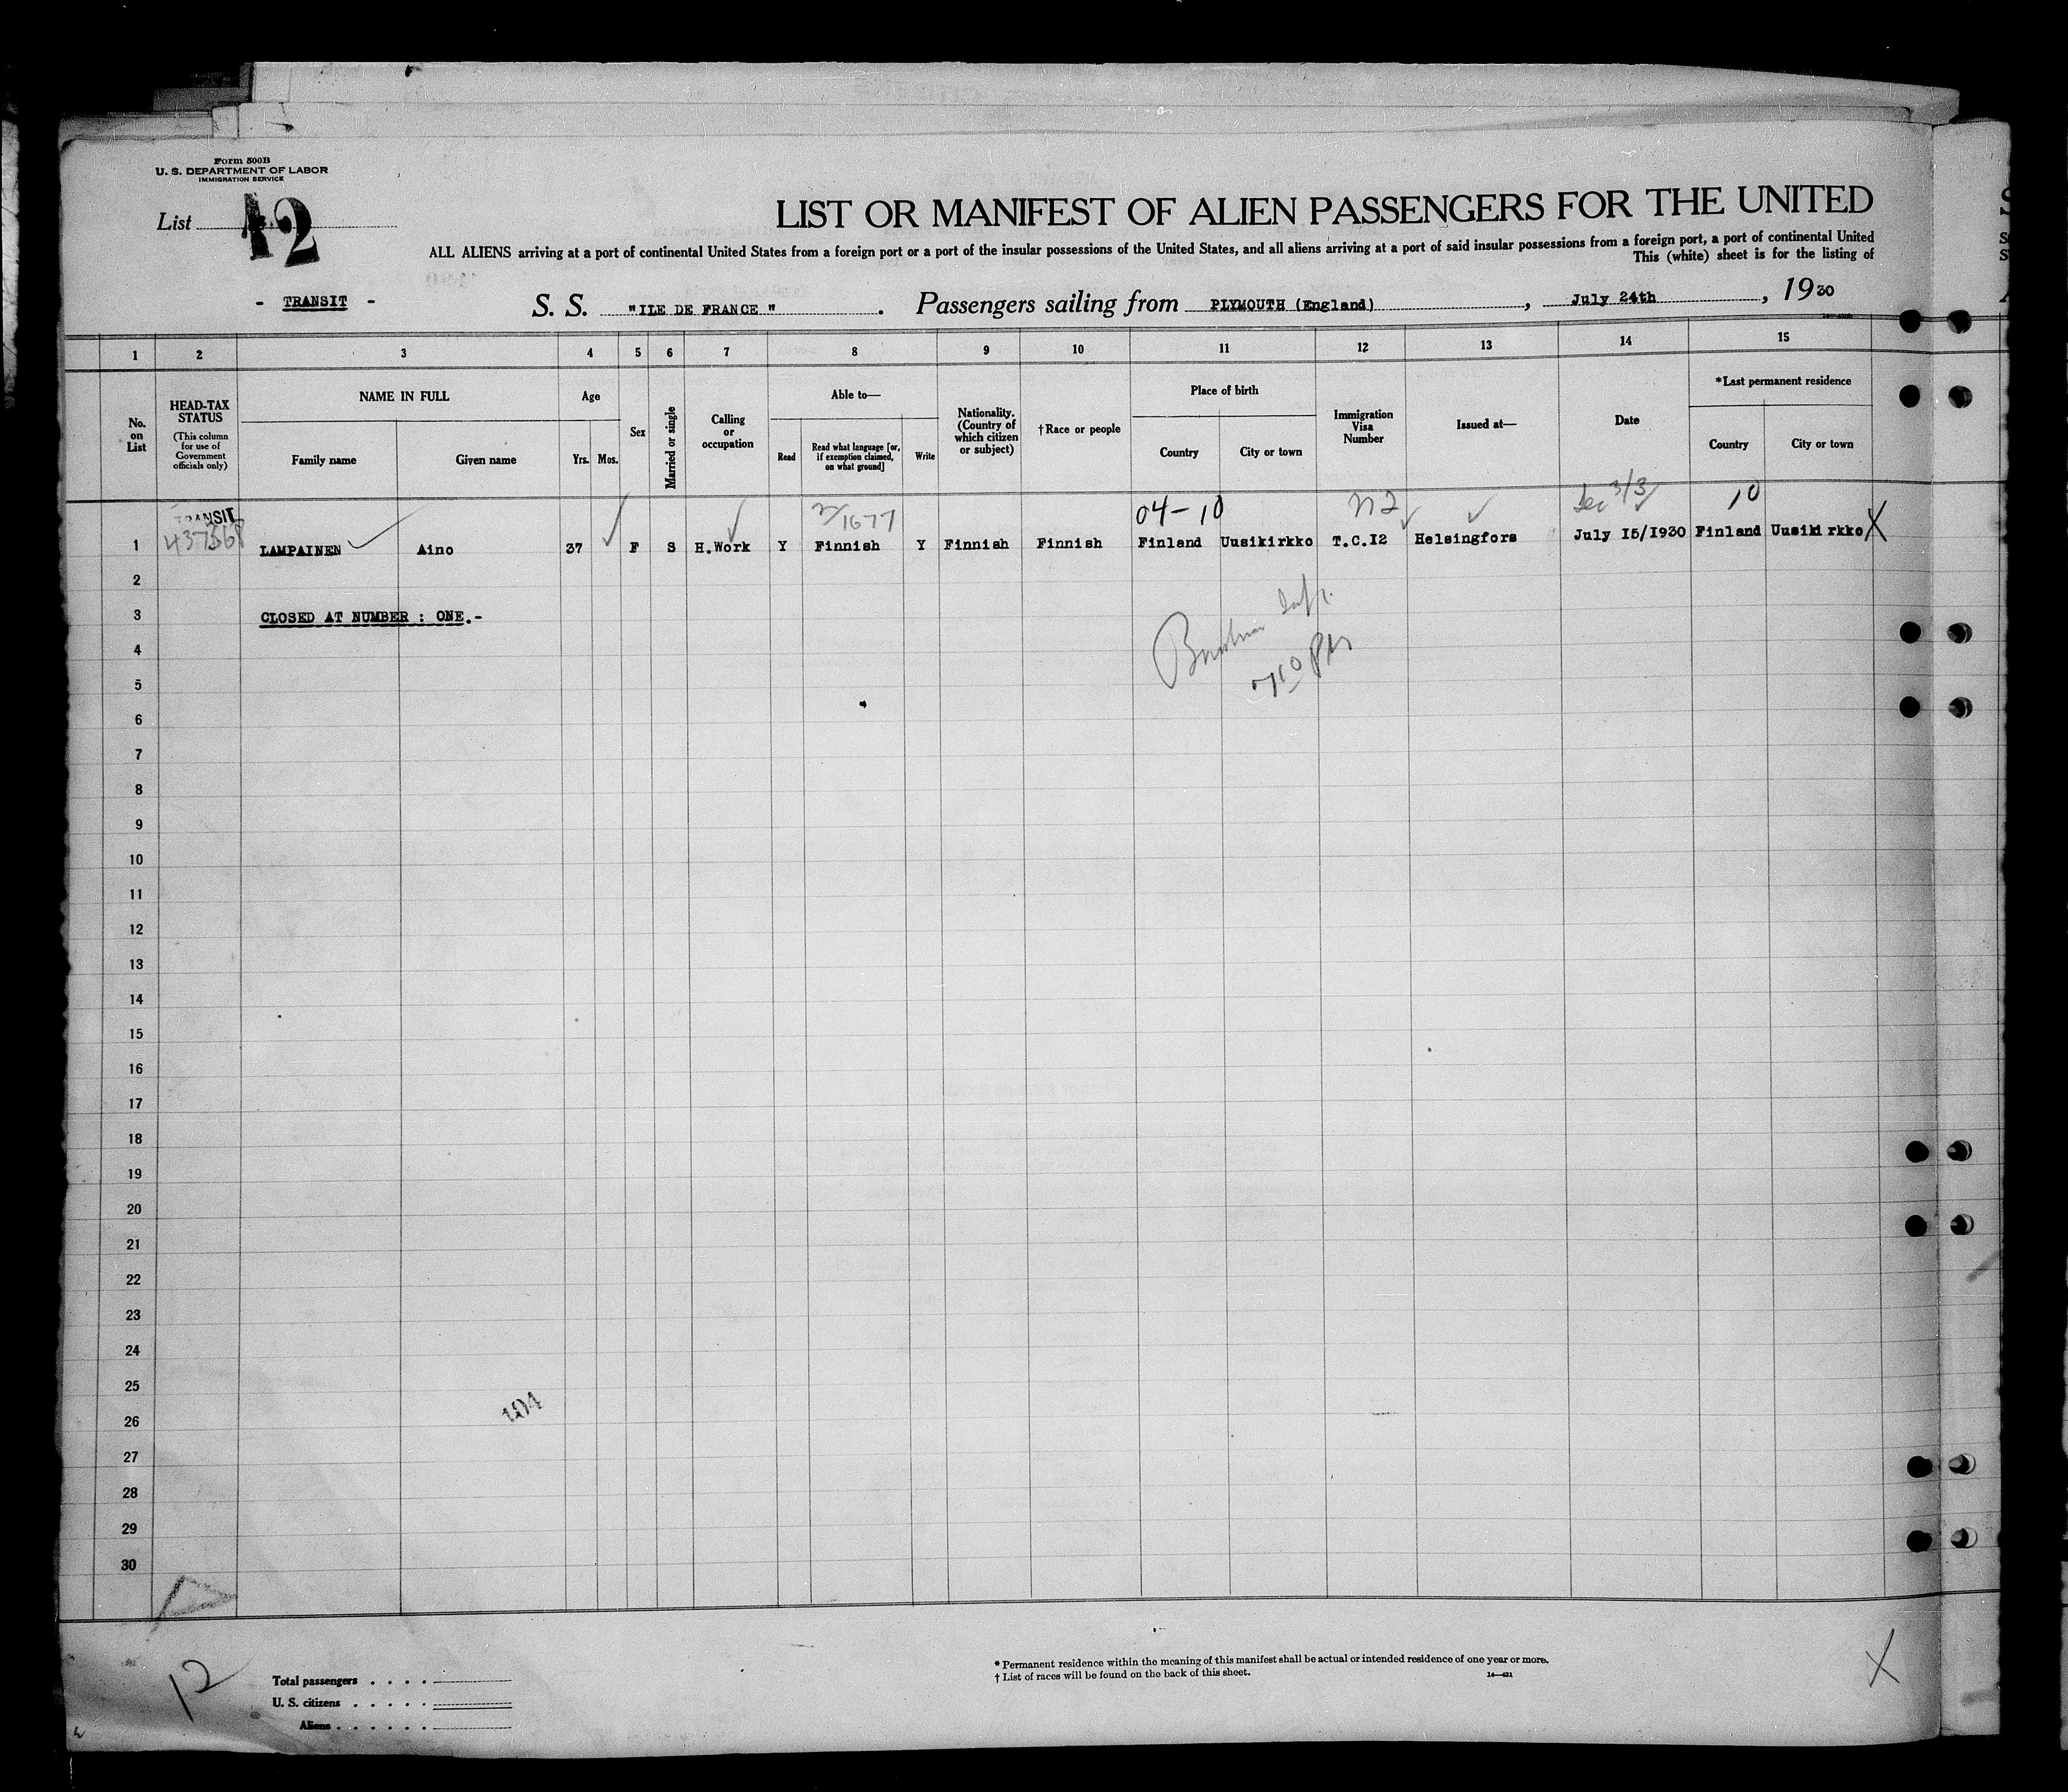 Form 500B
U. S. DEPARTMENT OF LABOR
IMMIGRATION SERVICE
List 12
LIST OR MANIFEST OF ALIEN PASSENGERS FOR THE UNITED
ALL ALIENS arriving at a port of continental United States from a foreign port or a port of the insular possessions of the United States, and all aliens arriving at a port of said insular possessions from a foreign port, a port of continental United
This (white) sheet is for the listing of
- TRANSIT - S. S. "ILE DE FRANCE" . Passengers sailing from PLYMOUTH (England) , July 24th , 1930
1 2 3 4 5 6 7 8 9 10 11 12 13 14 15
No. on List
HEAD-TAX STATUS (This column for use of Government officials only)
NAME IN FULL
Family name Given name
Age
Yrs. Mos.
Sex
Married or single
Calling or occupation
Able to—
Read
Read what language [or, if exemption claimed, on what ground]
Write
Nationality. (Country of which citizen or subject)
†Race or people
Place of birth
Country City or town
Immigration Visa Number
Issued at—
Date
*Last permanent residence
Country City or town
TRANSIT 04-10 10
1 LAMPAINEN Aino 37 F S H.Work Y Finnish Y Finnish Finnish Finland Uusikirkko T.C.I2 Helsingfors July I5/1930 Finland Uusiki rkko X
2
3 CLOSED AT NUMBER : ONE.-
4
5
6
7
8
9
10
11
12
13
14
15
16
17
18
19
20
21
22
23
24
25
26
27
28
29
30
104
12
Total passengers . . . .
U. S. citizens . . . . .
Aliens . . . . . .
* Permanent residence within the meaning of this manifest shall be actual or intended residence of one year or more.
† List of races will be found on the back of this sheet.
X